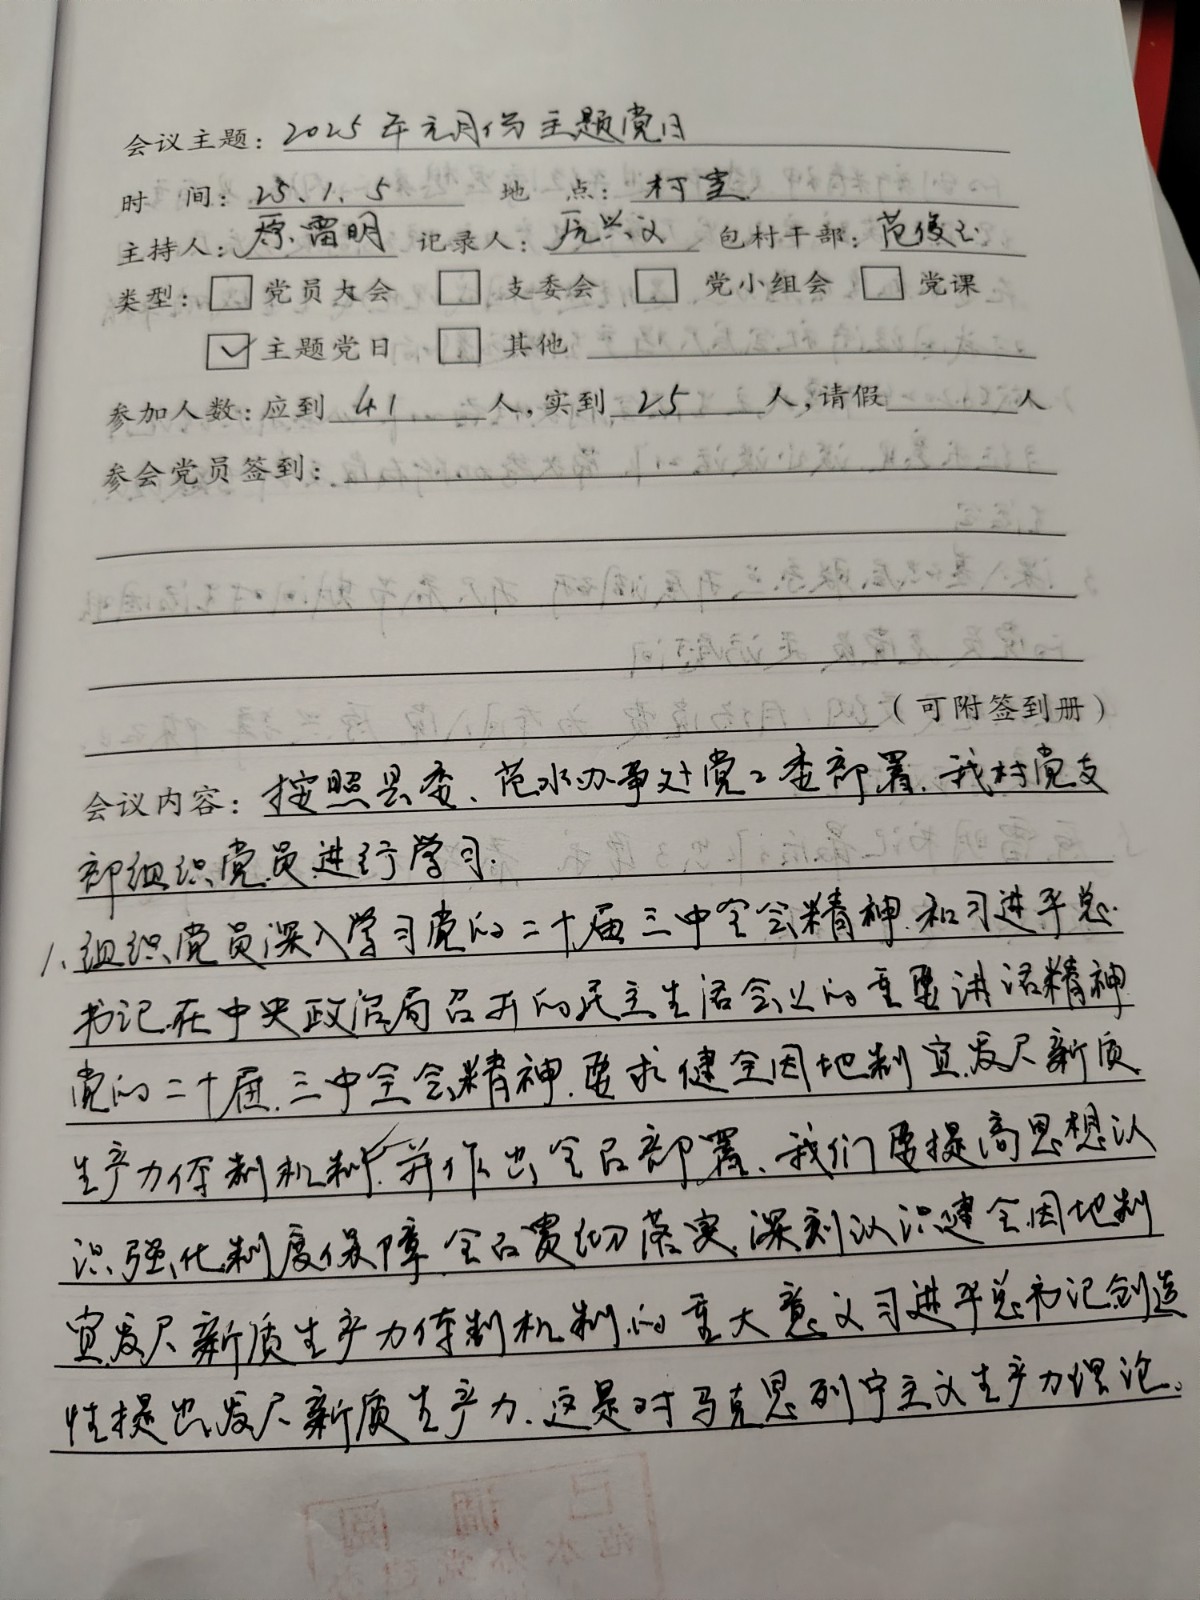 会议主题：2025年元月份主题党日
时 间：25.1.5 地 点：村室
主持人：原雷明 记录人：原兴义 包村干部：范俊玉
类型：□党员大会 □支委会 □党小组会 □党课
☑主题党日 □其他
参加人数：应到 41 人，实到 25 人，请假 人
参会党员签到：
（可附签到册）
会议内容：按照县委、范水办事处党工委部署、我村党支
部组织党员进行学习.
1、组织党员深入学习党的二十届三中全会精神.和习进平总
书记在中央政治局召开的民主生活会上的重要讲话精神
党的二十届.三中全会精神.要求健全因地制宜发尸新质
生产力体制机制.并作出全面部署、我们要提高思想认
识强化制度保障.全面贯彻落实.深刻认识健全因地制
宜发尸新质生产力体制机制的重大意义习进平总书记创造
性提出发尸新质生产力.这是对马克思列宁主义生产力理论、
已调阅
范水办党建办